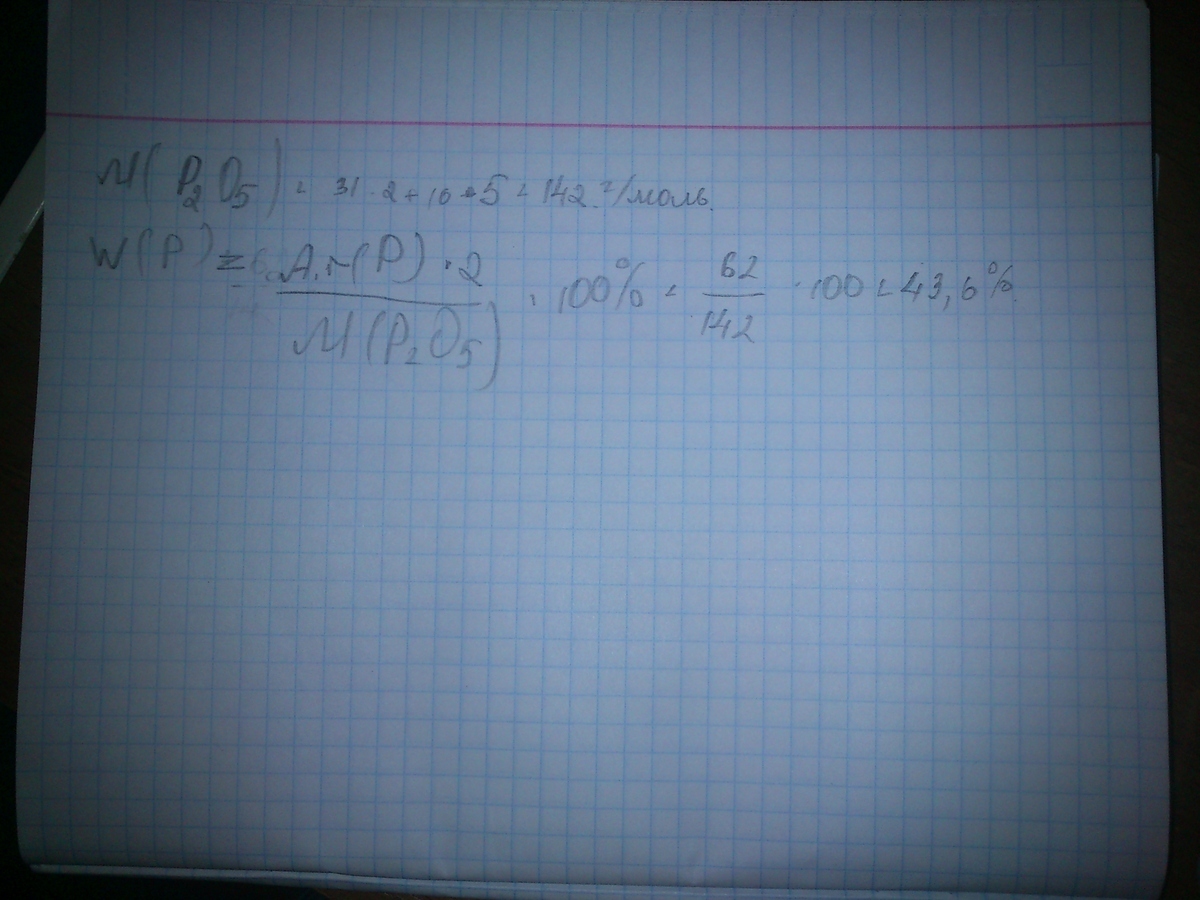 M(P₂O₅) = 31 · 2 + 16 · 5 = 142 г/моль.
W(P) = Ar(P) · 2 / M(P₂O₅) · 100% = 62 / 142 · 100 = 43,6%